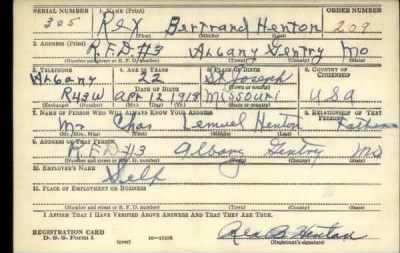 SERIAL NUMBER 1. NAME (Print) ORDER NUMBER
305 Rex Bertrand Henton 209
(First) (Middle) (Last)
2. ADDRESS (Print)
R.F.D #3 Albany Gentry Mo
(Number and street or R. F. D. number) (Town) (County) (State)
3. TELEPHONE 4. AGE IN YEARS 5. PLACE OF BIRTH 6. COUNTRY OF CITIZENSHIP
Albany 22 St Joseph
DATE OF BIRTH (Town or county)
R43W Apr 2 1918 Missouri USA
(Exchange) (Number) (Mo.) (Day) (Yr.) (State or country)
7. NAME OF PERSON WHO WILL ALWAYS KNOW YOUR ADDRESS 8. RELATIONSHIP OF THAT PERSON
Mr Chas Lemuel Henton Father
(Mr., Mrs., Miss) (First) (Middle) (Last)
9. ADDRESS OF THAT PERSON
R.F.D #3 Albany Gentry Mo
(Number and street or R. F. D. number) (Town) (County) (State)
10. EMPLOYER'S NAME
Self
11. PLACE OF EMPLOYMENT OR BUSINESS
(Number and street or R. F. D. number) (Town) (County) (State)
I AFFIRM THAT I HAVE VERIFIED ABOVE ANSWERS AND THAT THEY ARE TRUE.
REGISTRATION CARD
D. S. S. Form 1 (over) 16—17105 Rex B Henton
(Registrant's signature)